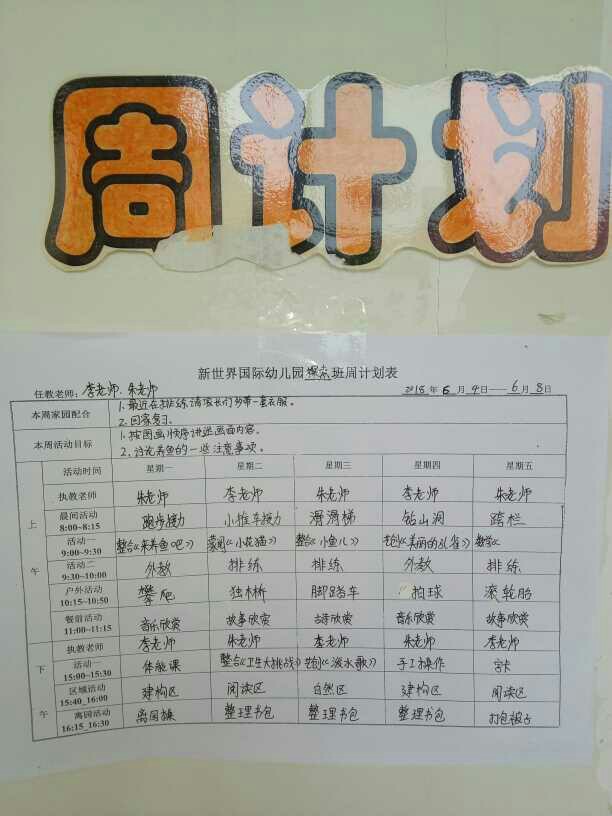 周计划
新世界国际幼儿园探索班周计划表
任教老师：李老师、朱老师 2018年6月4日——6月8日
本周家园配合 1.最近在排练请家长们多带一套衣服。
2.回家复习。
本周活动目标 1.按图画顺序讲述画面内容。
2.讨论养鱼的一些注意事项。
上午
活动时间 星期一 星期二 星期三 星期四 星期五
执教老师 朱老师 李老师 朱老师 李老师 朱老师
晨间活动 8:00~8:15 跑步接力 小推车接力 滑滑梯 钻山洞 跨栏
活动一 9:00~9:30 整合《来养鱼吧》 蒙氏《小花猫》 整合《小鱼儿》 《美丽的孔雀》 数学《
活动二 9:30~10:00 外教 排练 排练 外教 排练
户外活动 10:15~10:50 攀爬 独木桥 脚踏车 拍球 滚轮胎
餐前活动 11:00~11:15 音乐欣赏 故事欣赏 古诗欣赏 音乐欣赏 故事欣赏
下午
执教老师 李老师 朱老师 李老师 朱老师 李老师
活动一 15:00~15:30 体能课 整合《卫生大挑战》 《泼水歌》 手工操作 字卡
区域活动 15:40_16:00 建构区 阅读区 自然区 建构区 阅读区
离园活动 16:15_16:30 离园操 整理书包 整理书包 整理书包 打包被子